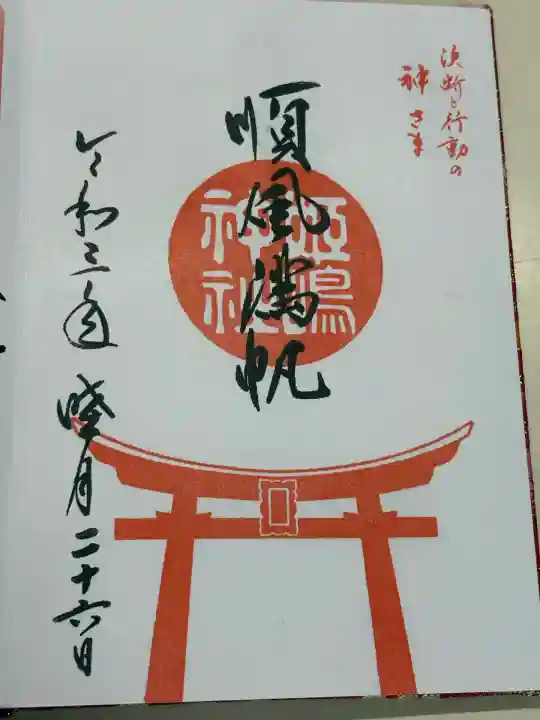 決断と行動の
神さま
順風満帆
神社
令和三年 睦月二十六日